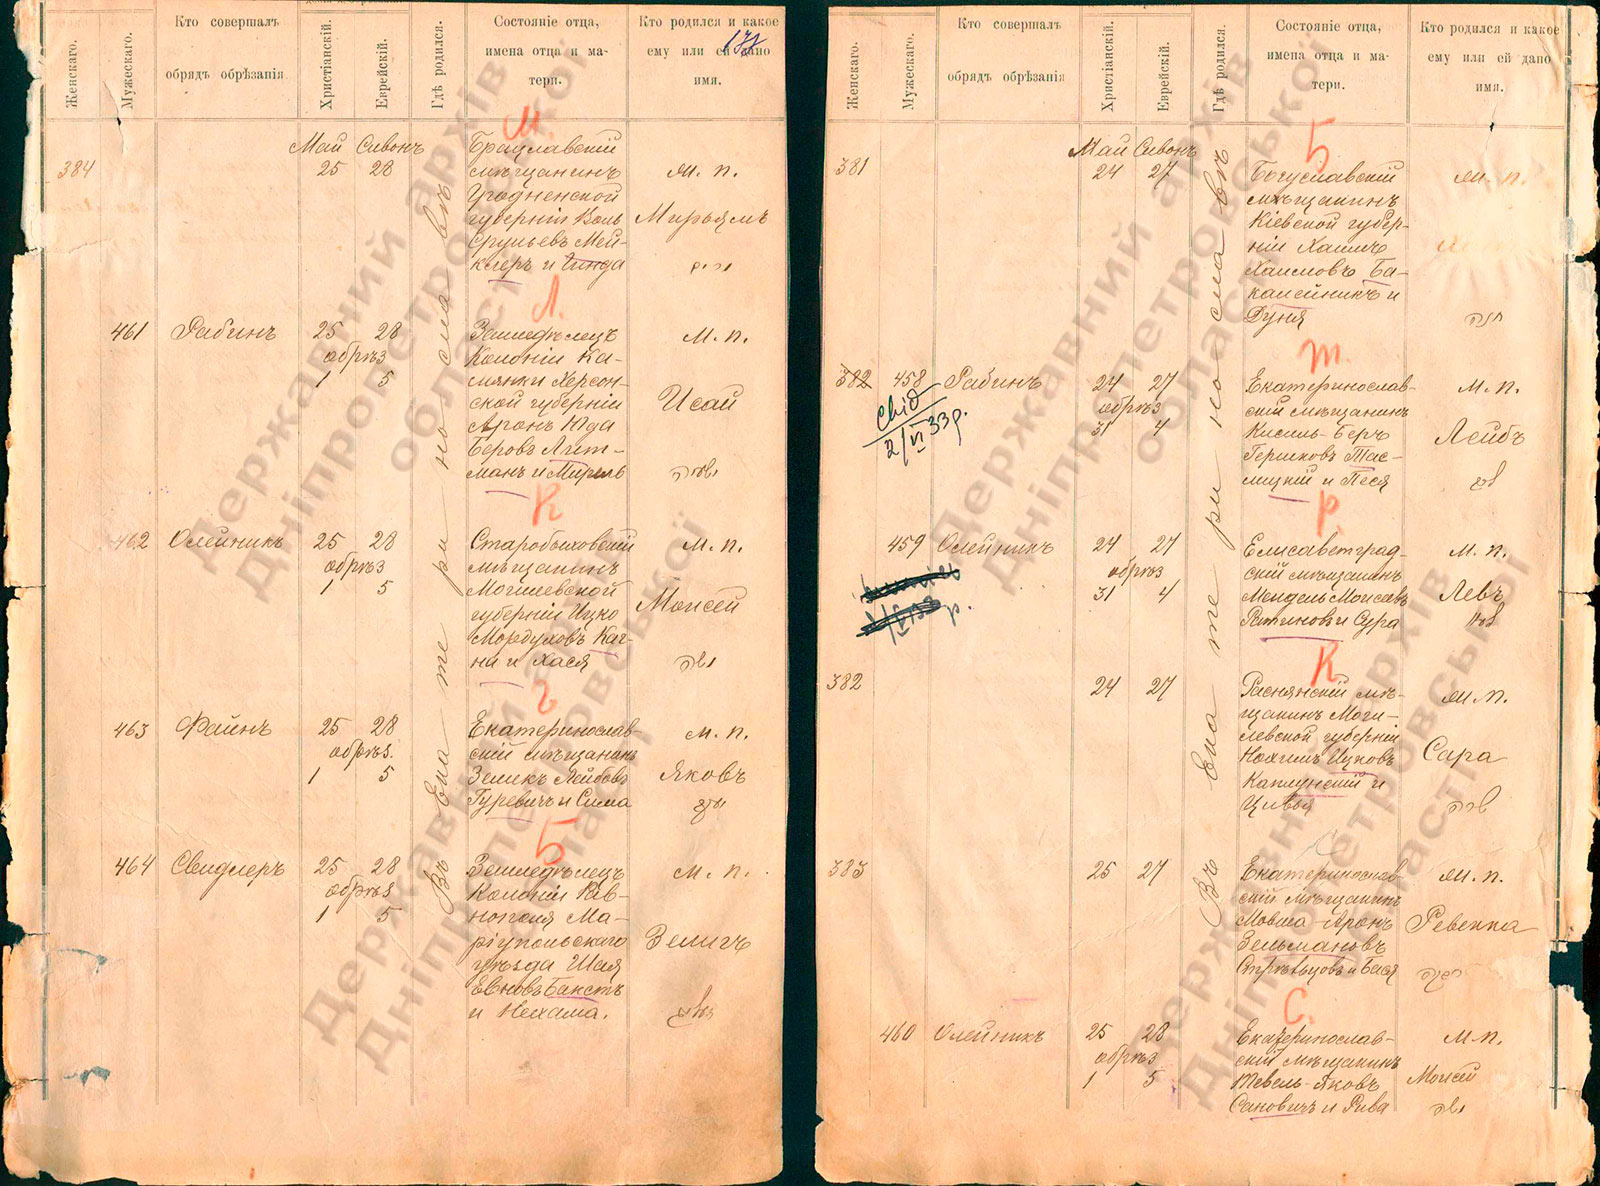 Женскаго.
Мужескаго.
Кто совершалъ
обрядъ обрѣзанія
Христіанскій.
Еврейскій.
Гдѣ родился.
Состояніе отца,
имена отца и ма-
тери.
Кто родился и какое
ему или ей дано
имя.
Май Сивонъ
384 25 28
М.
Брацлавскій
мѣщанинъ
Гродненской
губерніи
и
м. п.
Мирьямъ
מרים
461 Рабинъ 25 28
обрѣз
1 5
Л.
Земледѣлецъ
Колоніи Ка-
мянки Херсон-
ской губерніи
Аронъ Юда
Беровъ Лит-
манъ и Мирель
м. п.
Исай
462 Олейникъ 25 28
обрѣз
1 5
К
Старобыховскій
мѣщанинъ
Могилевской
губерніи Ицко
Мордуховъ Каг-
на и Хася
м. п.
Моисей
משה
463 Файнъ 25 28
обрѣз.
1 5
Г
Екатеринослав-
скій мѣщанинъ
Зелекъ Лейбовъ
Гуревичъ и Сима
м. п.
Яковъ
יעקב
464 Свидлеръ 25 28
обрѣз
1 5
Б
Земледѣлецъ
Колоніи Рав-
нополя Ма-
ріупольскаго
уѣзда Шая
Евновъ Бакстъ
и Нехама.
м. п.
Зелигъ
Въ Екатеринославѣ
Женскаго.
Мужескаго.
Кто совершалъ
обрядъ обрѣзанія
Христіанскій.
Еврейскій.
Гдѣ родился.
Состояніе отца,
имена отца и ма-
тери.
Кто родился и какое
ему или ей дано
имя.
Май Сивонъ
381 24 27
Б
Богуславскій
мѣщанинъ
Кіевской губер-
ніи Хаимъ
Хаимовъ Ба-
калейникъ и
Дуня
м. п.
חנה
382 458 Рабинъ 24 27
обрѣз
31 4
2/VI 33р.
Т.
Екатеринослав-
скій мѣщанинъ
Кисиль-Беръ
Гершковъ Тас-
лицкій и Песя
м. п.
Лейбъ
לייב
459 Олейникъ 24 27
обрѣз
31 4
Р.
Елисаветград-
скій мѣщанинъ
Мендель Моисеевъ
и Сура
м. п.
Левъ
382 24 27
К
Раснянскій мѣ-
щанинъ Моги-
левской губерніи
Нохимъ Ицковъ
Каплунскій и
Цивья
м. п.
Сара
שרה
383 25 27
Екатеринослав-
скій мѣщанинъ
Мовша-Аронъ
Зельмановъ
Стрѣльцовъ и Бася
м. п.
Ревекка
רבקה
460 Олейникъ 25 28
обрѣз
1 5
С.
Екатеринослав-
скій мѣщанинъ
Тевель-Яковъ
Сановичъ и Рива
м. п.
Моисей
משה
Въ Екатеринославѣ
Державний архів
Дніпропетровської
області